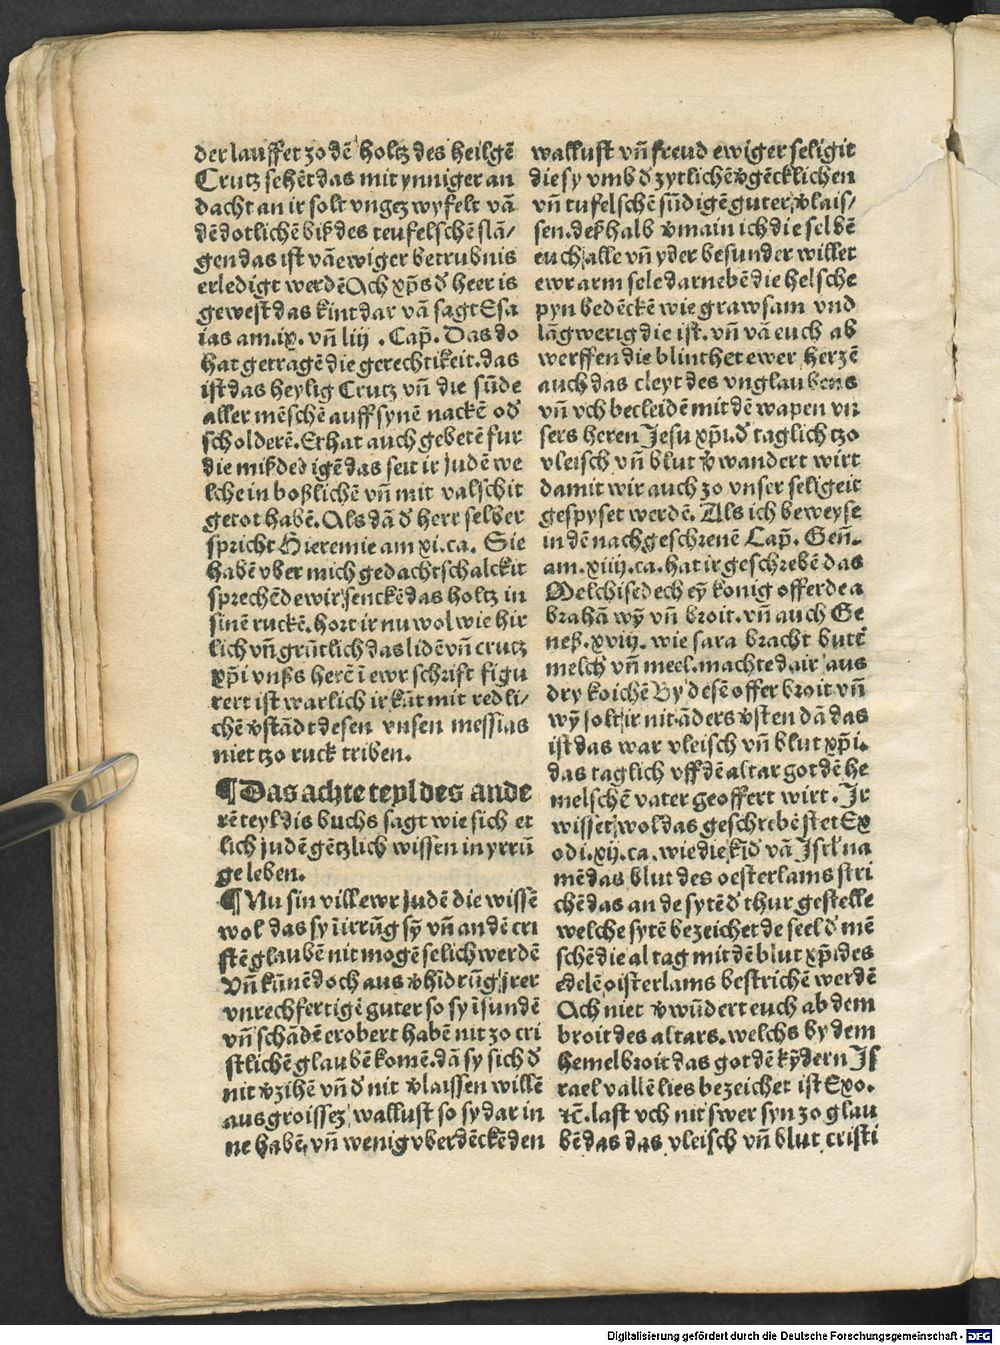 der lauffet zo dẽ holtz des heilgẽ
Crutz sehẽt das mit ynniger an
dacht an ir solt vngezwyfelt vã
dẽ dotlichẽ biß des teufelschẽ slã/
gen das ist vã ewiger betrubnis
erledigt werdẽ Och xp̃s d̕ heer is
gewest das kint dar vã sagt Esa
ias am .ix. vñ liij . Cap̃. Das do
hat getragẽ die gerechtikeit. das
ist das heylig Crutz vñ die sũde
aller mẽschẽ auff synẽ nackẽ od̕
scholderẽ. Er hat auch gebetẽ fur
die mißded igẽ das seit ir judẽ we
lche in boßlichẽ vñ mit valschit
getot habẽ. Als dã d̕ herr selber
spricht Hieremie am xi. ca. Sie
habẽ vber mich gedacht schalckit
sprechẽde wir senckẽ das holtz in
sinẽ ruckẽ. hort ir nu wol wie hir
lich vñ grũtlich das lidẽ vñ crutz
xp̃i vnßs herẽ ĩ ewr schrift figu
rert ist warlich ir kãt mit redli/
chẽ v̕stãdt desen vnsen messias
niet tzo ruck triben.
¶ Das achte teyl des ande
rẽ teyl dis buchs sagt wie sich et
lich judẽ gẽtzlich wissen in yrrũ
ge leben.
¶ Nu sin vill ewr judẽ die wissẽ
wol das sy ĩ irrũg sỹ vñ an dẽ cri
stẽ glaubẽ nit mogẽ selich werdẽ
Vñ kũnẽ doch aus v̕hĩdrũg jrer
vnrechfertigẽ guter so sy ĩ sundẽ
vñ schãdẽ erobert habẽ nit zo cri
stlichẽ glaubẽ komẽ. dã sy sich d̕
nit v̕zihẽ vñ d̕ nit v̕laissen willẽ
aus groissez wallust so sy dar in
ne habẽ, vñ wenig vberdẽckẽ den
wallust vñ freud ewiger seligit
die sy vmb d̕ zytlichẽ v̕gẽcklichen
vñ tufelschẽ sũdigẽ guter, v̕lais/
sen. deßhalb v̕main ich die selbẽ
euch alle vñ yder besunder willet
ewr arm sele darnebẽ die helsche
pyn bedẽckẽ wie grawsam vnd
lãgwerig die ist. vñ vã euch ab
werffen die blinthet ewer herzẽ
auch das cleyt des vnglaubens
vñ vch becleidẽ mit dẽ wapen vn
sers heren Jesu xp̃i. d̕ taglich tzo
vleisch vñ blut v̕wandert wirt
damit wir auch zo vnser seligeit
gespyset werdẽ. Als ich beweyse
in dẽ nachgeschrenẽ Cap̃. Geñ.
am. xiiij. ca. hat ir geschrebẽ das
Melchisedech eỹ konig offerde a
brahã wỹ vñ broit. vñ auch Ge
neß. xviij. wie sara bracht butẽ
melch vñ meel. machte dair aus
dry koichẽ By desẽ offer broit vñ
wỹ solt ir nit ãders v̕sten dã das
ist das war vleisch vñ blut xp̃i.
das taglich vff dẽ altar got dẽ he
melschẽ vater geoffert wirt. Jr
wisset wol das geschrebẽ stet Ex
odi. xij. ca. wie die kĩd vã Isrl̕ na
mẽ das blut des oesterlams stri
chẽ das an de sytẽ d̕ thur gestelle
welche sytẽ bezeichet de seel d̕ mẽ
schẽ die al tag mit dẽ blut xp̃i des
edelẽ oisterlams bestrichẽ werdẽ
Och niet v̕wũdert euch ab dem
broit des altars. welchs by dem
hemelbroit das got dẽ kỹdern Is
rael vallẽ lies bezeichet ist Exo.
⁊c̃. last vch nit swer syn zo glau
bẽ das das vleisch vñ blut cristi
Digitalisierung gefördert durch die Deutsche Forschungsgemeinschaft - DFG